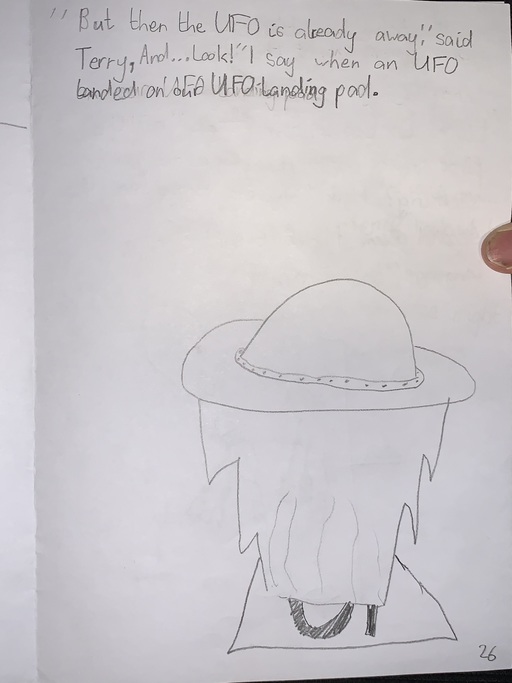 " But then the UFO is already away." said
Terry, And...Look!" I say when an UFO
landed on our UFO Landing pad.
26